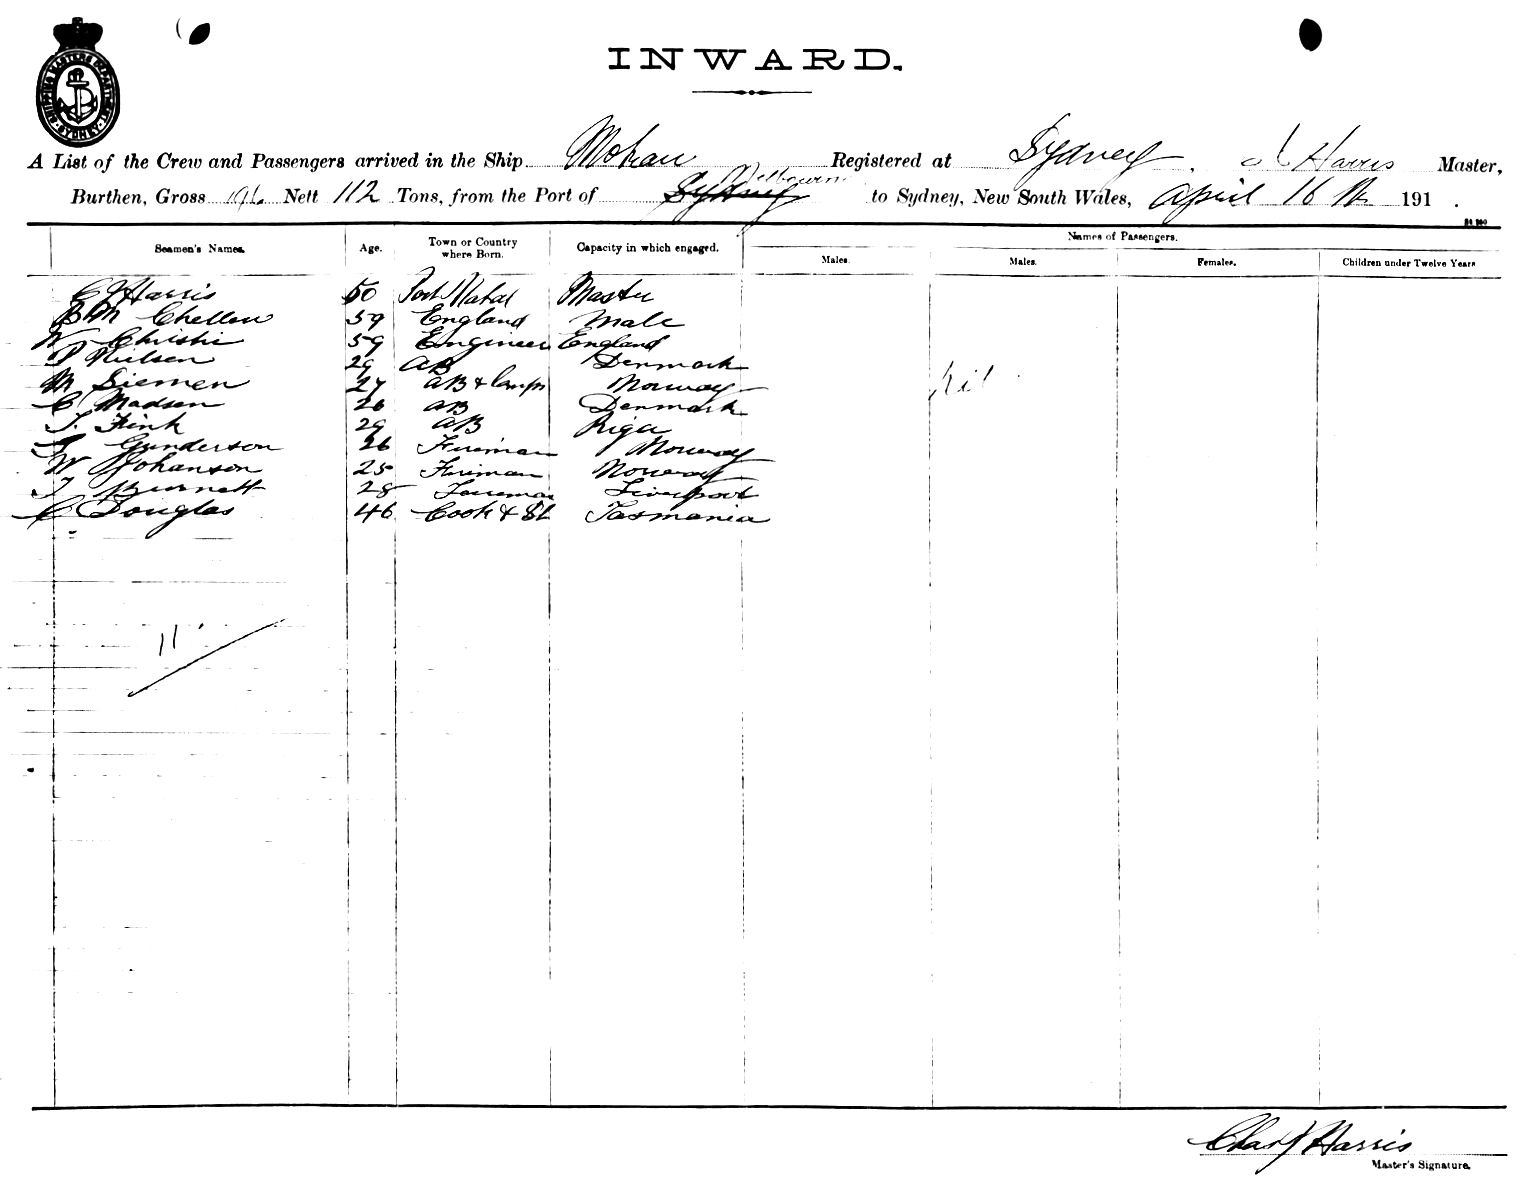 SHIPPING MASTERS DEPARTMENT SYDNEY
INWARD.
A List of the Crew and Passengers arrived in the Ship Mokau Registered at Sydney, C J Harris Master,
Burthen, Gross 196 Nett 112 Tons, from the Port of Sydney Melbourne to Sydney, New South Wales, April 16th 191 .
Seamen's Names. Age. Town or Country where Born. Capacity in which engaged. Names of Passengers.
Males. Males. Females. Children under Twelve Years
C J Harris 50 Port Natal Master
59 England Mate
W Christie 59 Engineer England
P Nielsen 29 AB Denmark
M Siemen 27 AB & lamps Norway
C Madsen 26 AB Denmark
J. Fink 29 AB Riga
Gunderson 26 Fireman Norway
W Johanson 25 Fireman Norway
J Burnett 28 Liverpool
C Douglas 46 Cook & St Tasmania
Nil
11
Chas J Harris
Master's Signature.